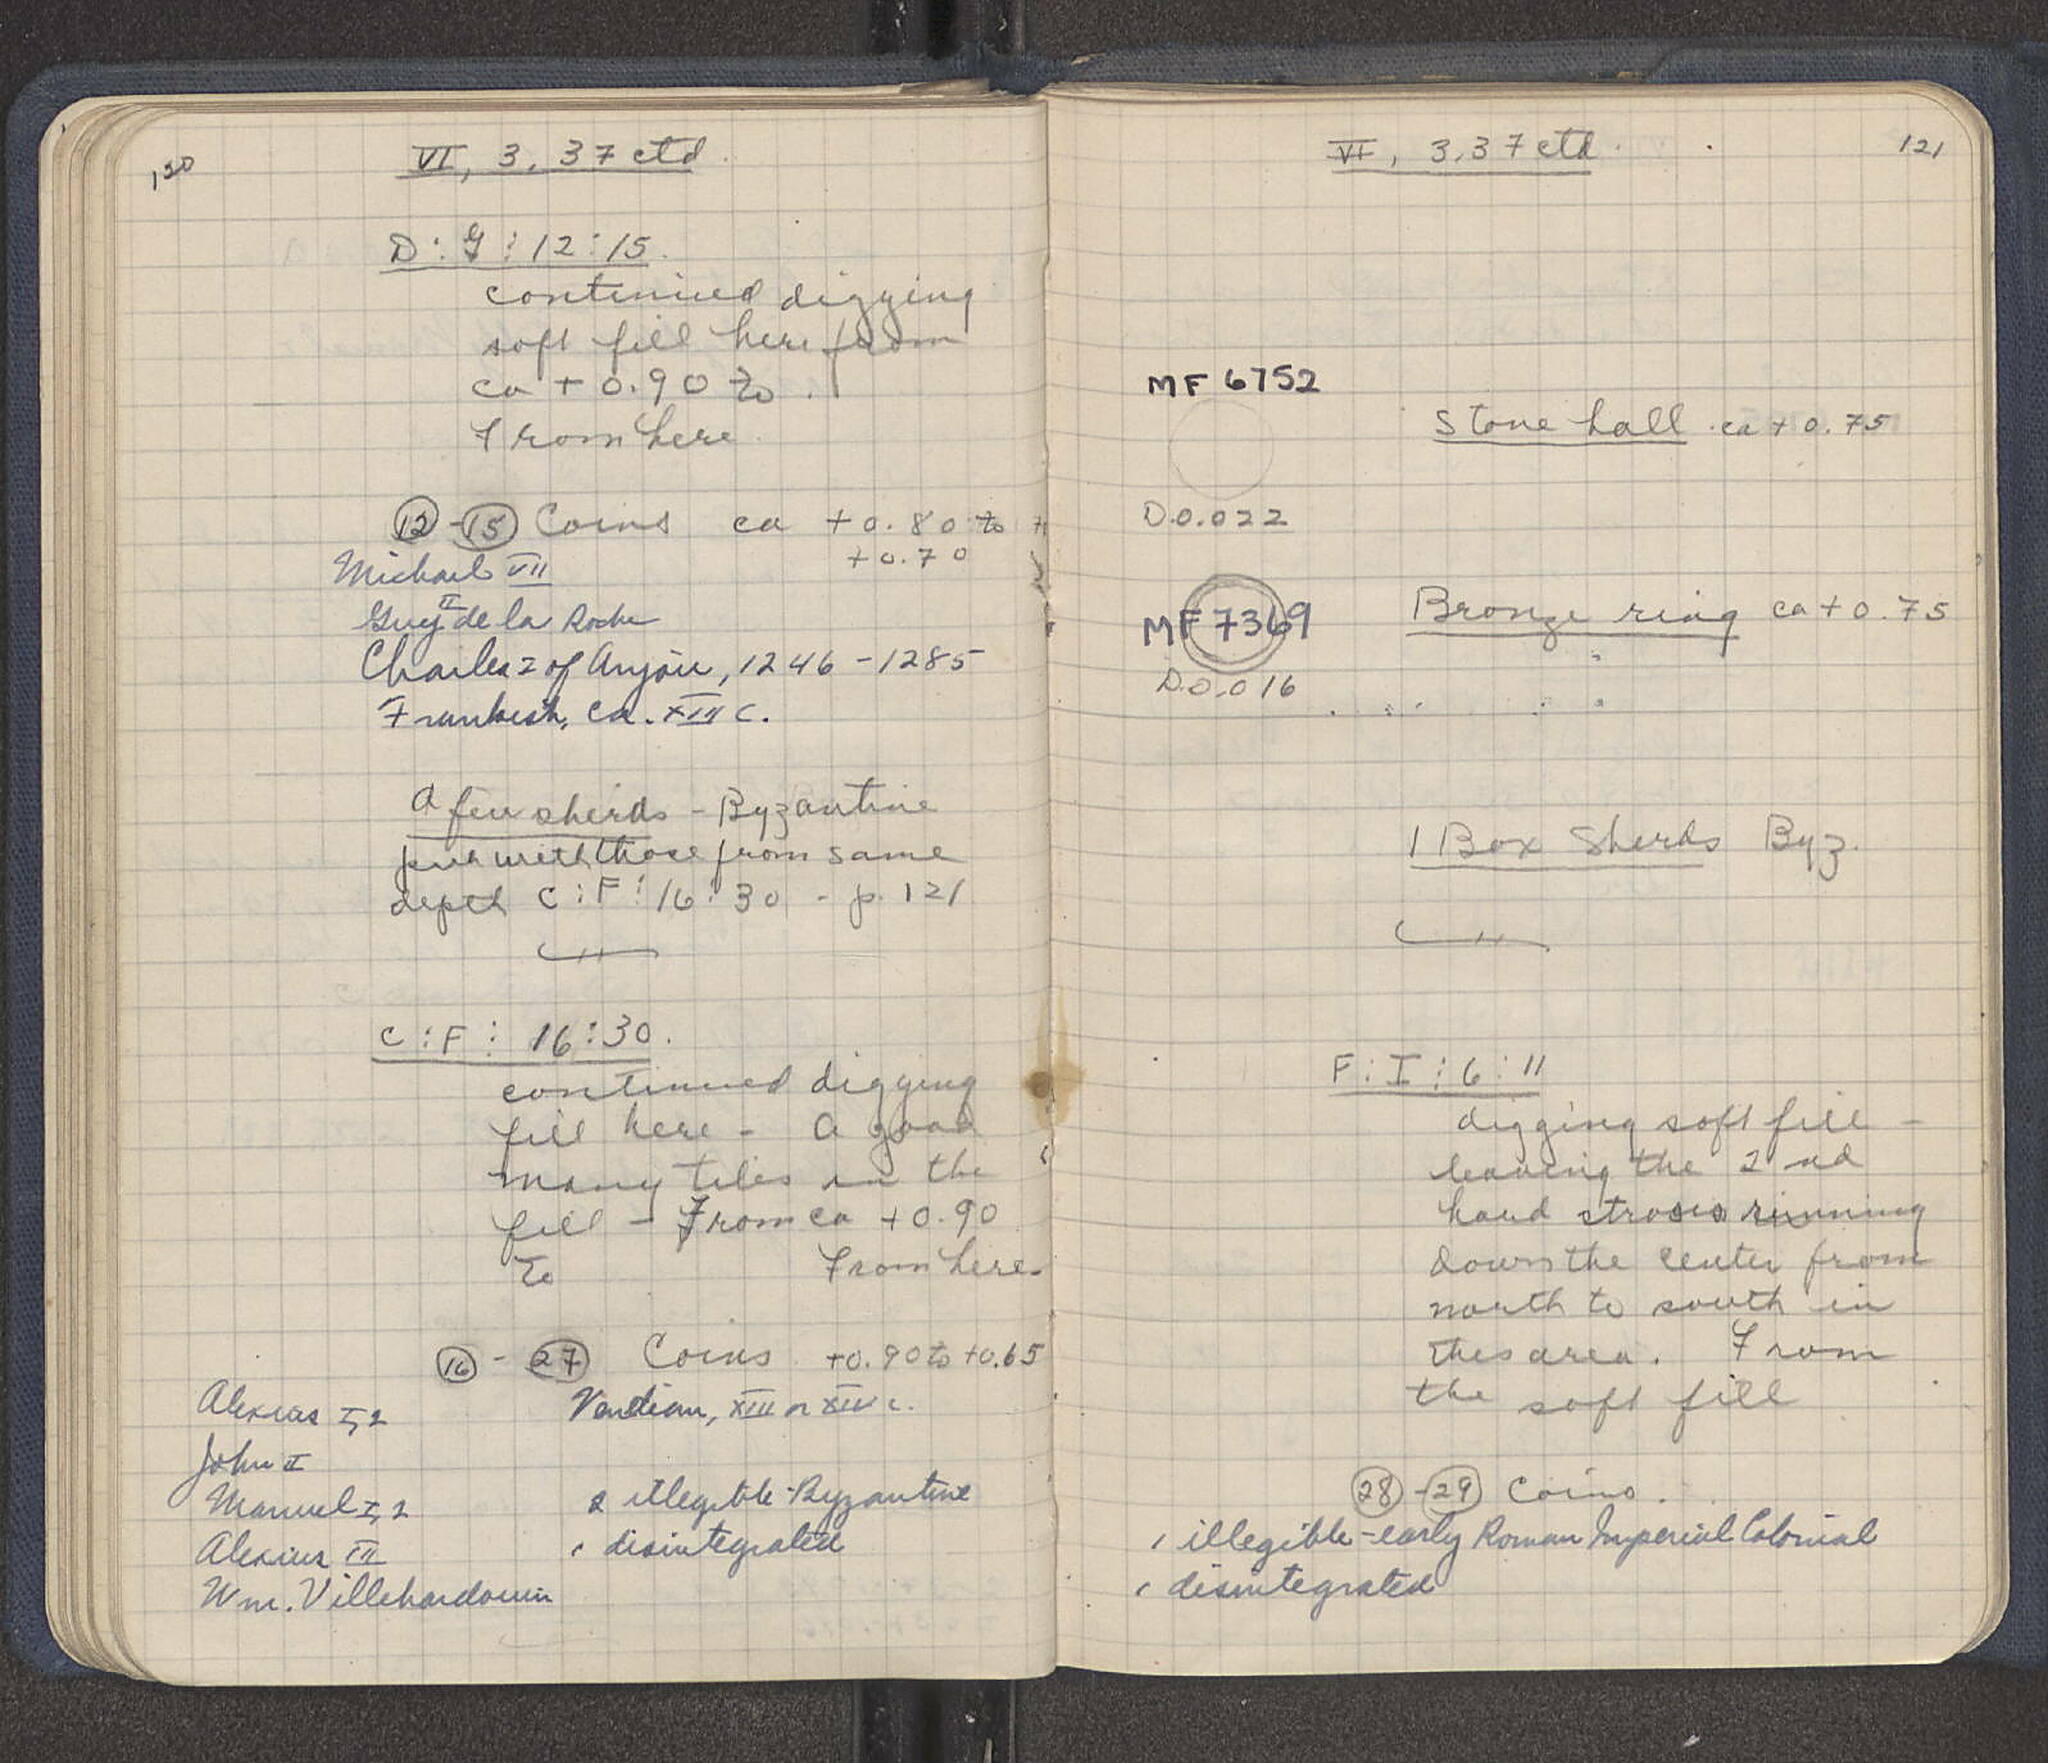 120
VI, 3, 37 ctd.
D:G:12:15.
continued digging
soft fill here from
ca + 0.90 to .
From here.
12 - 15 Coins ca +0.80 to
+0.70
Michael VII
Guy II de la Roche
Charles I of Anjou, 1246 - 1285
Frankish, ca. XIII c.
A few sherds - Byzantine
put with those from same
depth C:F:16:30 - p. 121
C:F: 16:30.
continued digging
fill here - A good
many tiles in the
fill - From ca +0.90
to From here.
16 - 27 Coins +0.90 to +0.65
Alexius I, 2
Venetian, XIII or XIV c.
John II
Manuel I, 2
2 illegible - Byzantine
Alexius III
1 disintegrated
Wm. Villehardouin
VI, 3, 37 ctd.
121
MF 6752
Stone ball ca + 0.75
D.0.022
MF 7369
Bronze ring ca + 0.75
D.0.016
1 Box Sherds Byz.
F:I:6:11
digging soft fill -
leaving the 2nd
hand stroses running
down the center from
north to south in
this area. From
the soft fill
28 - 29 Coins.
1 illegible - early Roman Imperial Colonial
1 disintegrated